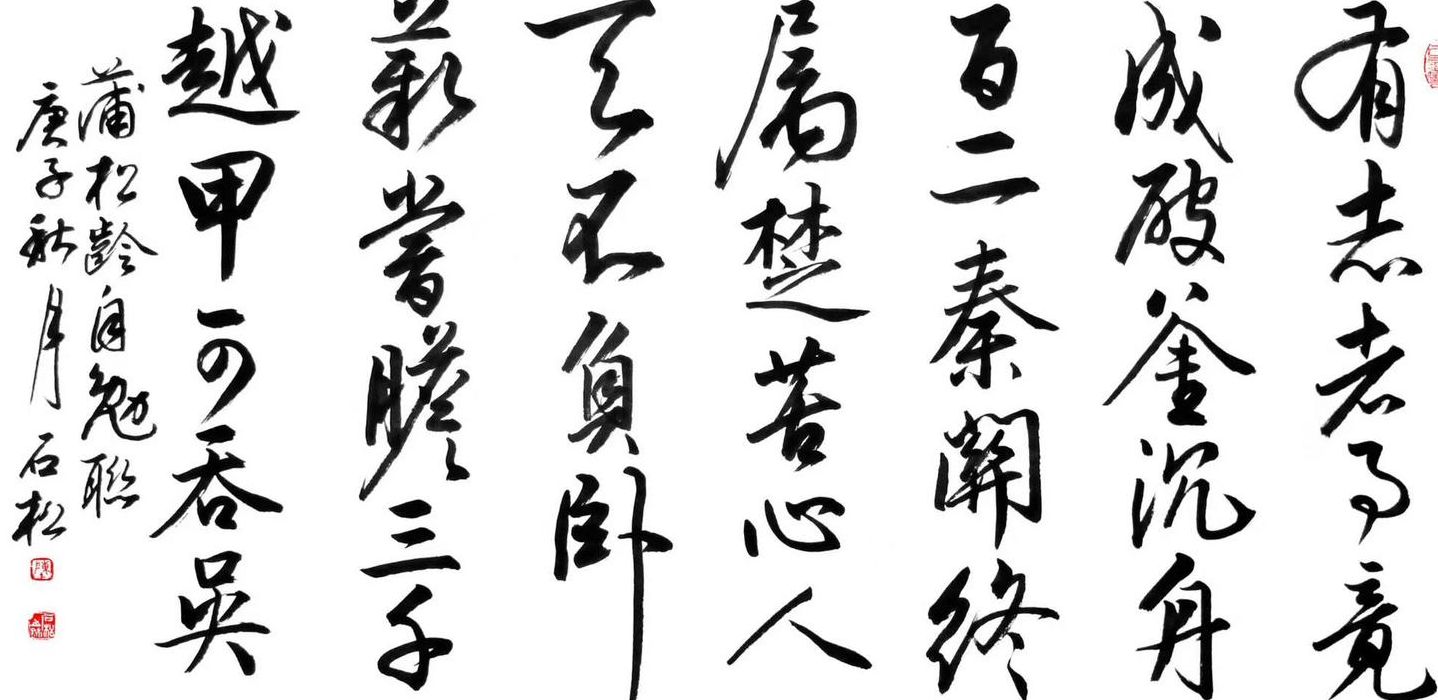 有志者事竟
成破釜沉舟
百二秦關終
属楚苦心人
天不負卧
薪嘗膽三千
越甲可吞吴
蒲松齡自勉聯
庚子秋月石松